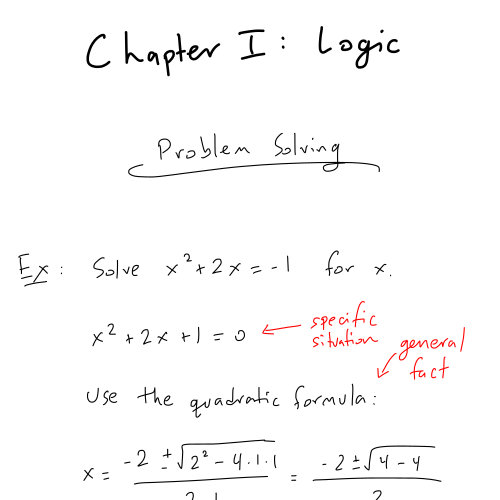 Chapter I: Logic
Problem Solving
Ex: Solve x² + 2x = -1 for x.
x² + 2x + 1 = 0 ← specific situation
Use the quadratic formula: ↙ general fact
x = (-2 ± √(2² - 4·1·1))/(2·1) = (-2 ± √(4 - 4))/2